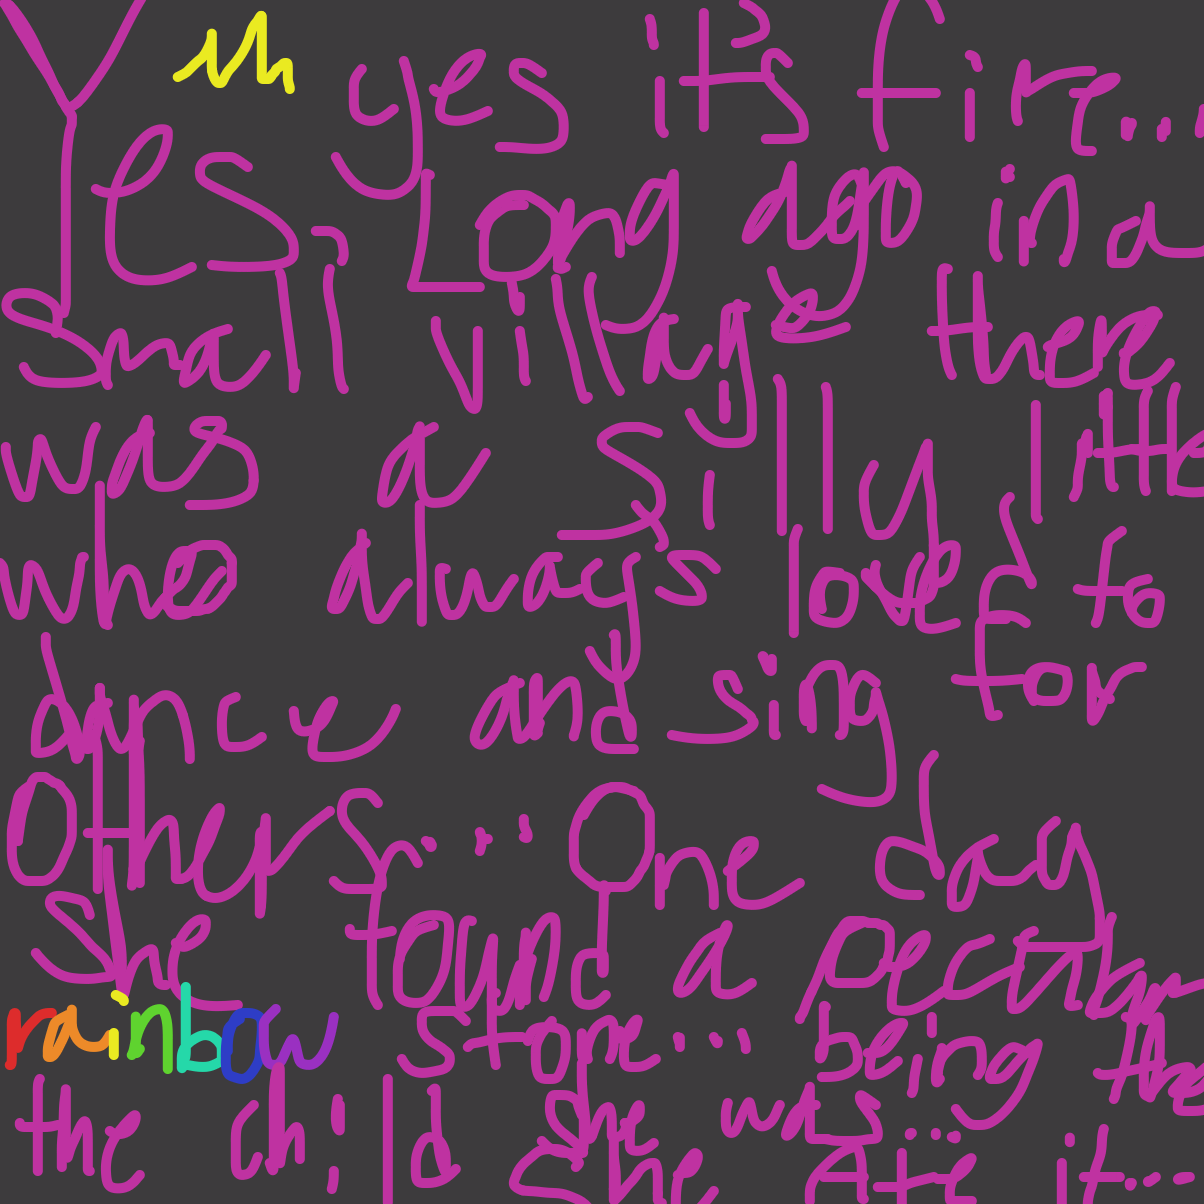 Yes, yes it's fire...
Long ago in a
small village there
was a silly little
who always loved to
dance and sing for
others... One day
she found a peculiar
rainbow stone... being the
the child she was...
she ate it...